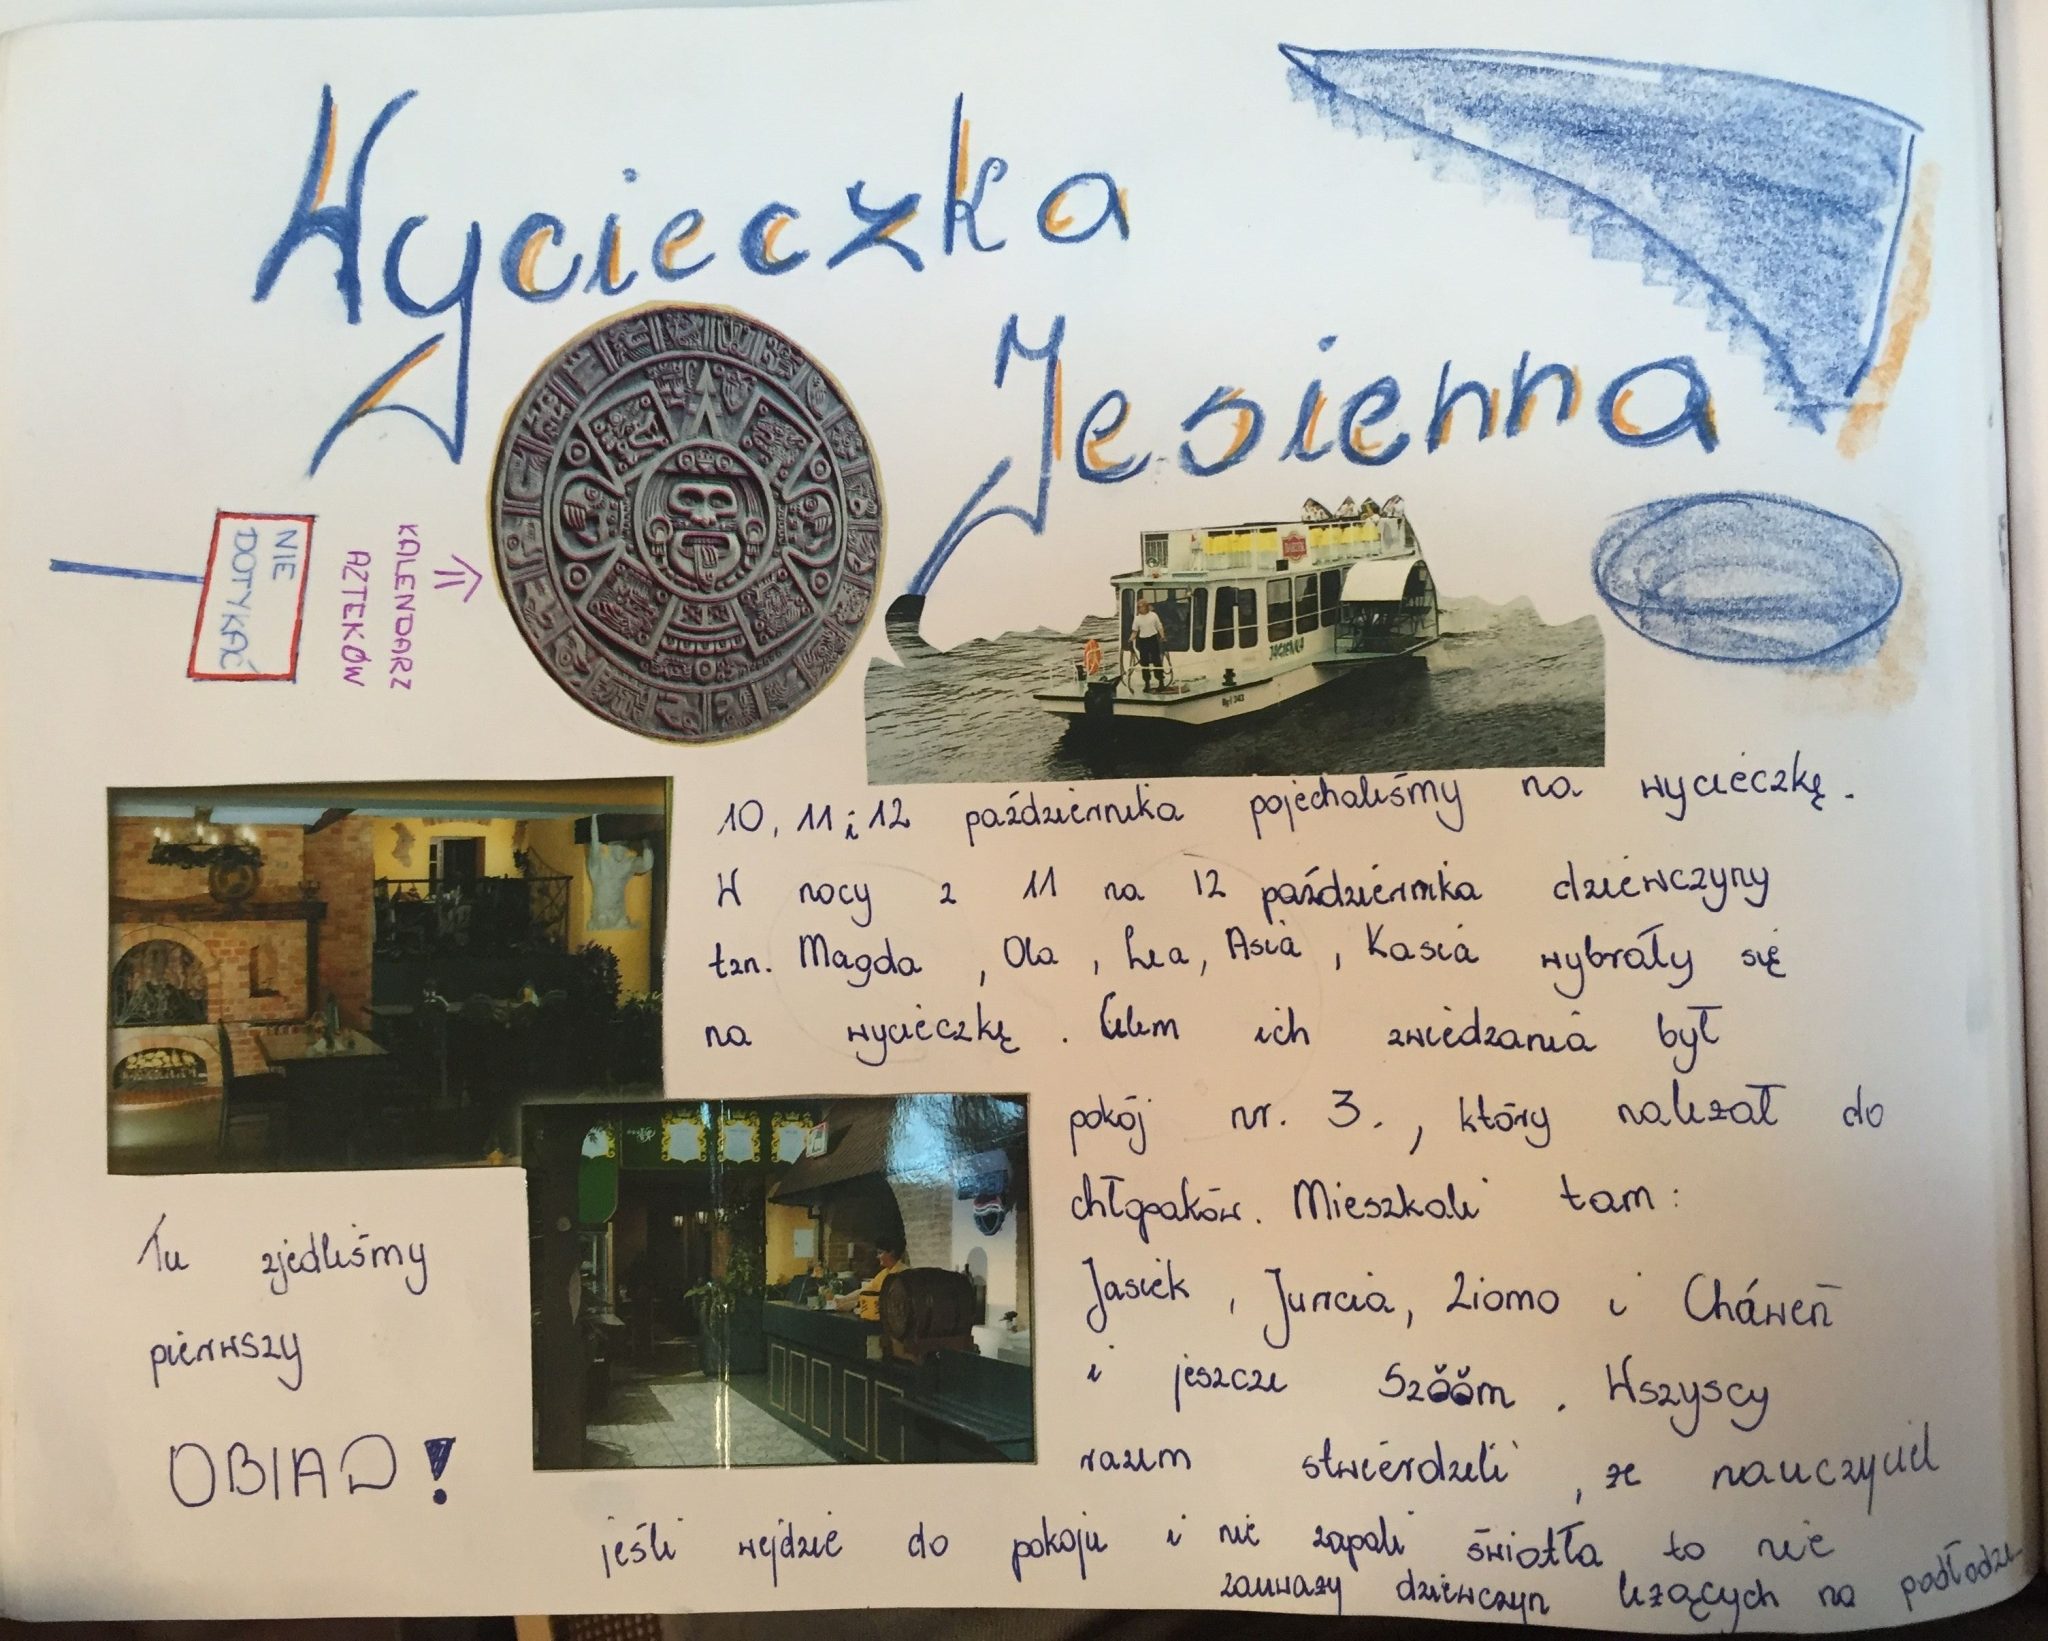 Wycieczka
Jesienna
NIE
DOTYKAĆ
KALENDARZ
AZTEKÓW
JAGIENKA
10, 11 i 12 października pojechaliśmy na wycieczkę.
W nocy z 11 na 12 października dziewczyny
tzn. Magda, Ola, Lea, Asia, Kasia wybrały się
na wycieczkę. Celem ich zwiedzania był
pokój nr. 3., który należał do
chłopaków. Mieszkali tam:
Jasiek, Juncia, Ziomo i Cháweñ
i jeszcze Szŏŏm. Wszyscy
razem stwierdzili, że nauczyciel
jeśli wejdzie do pokoju i nie zapali światła to nie
zauważy dziewczyn leżących na podłodze
Tu zjedliśmy
pierwszy
OBIAD!